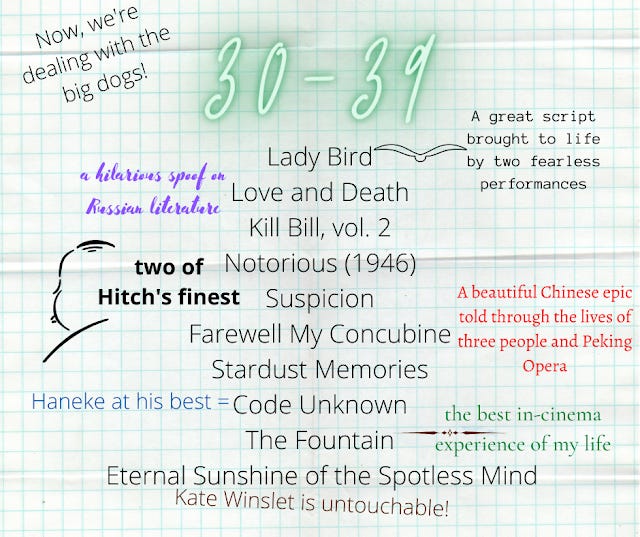 Now, we're
dealing with the
big dogs!
30-39
A great script
brought to life
by two fearless
performances
Lady Bird
a hilarious spoof on
Russian literature
Love and Death
Kill Bill, vol. 2
two of
Hitch's finest
Notorious (1946)
Suspicion
A beautiful Chinese epic
told through the lives of
three people and Peking
Opera
Farewell My Concubine
Stardust Memories
Haneke at his best =
Code Unknown
the best in-cinema
experience of my life
The Fountain
Eternal Sunshine of the Spotless Mind
Kate Winslet is untouchable!